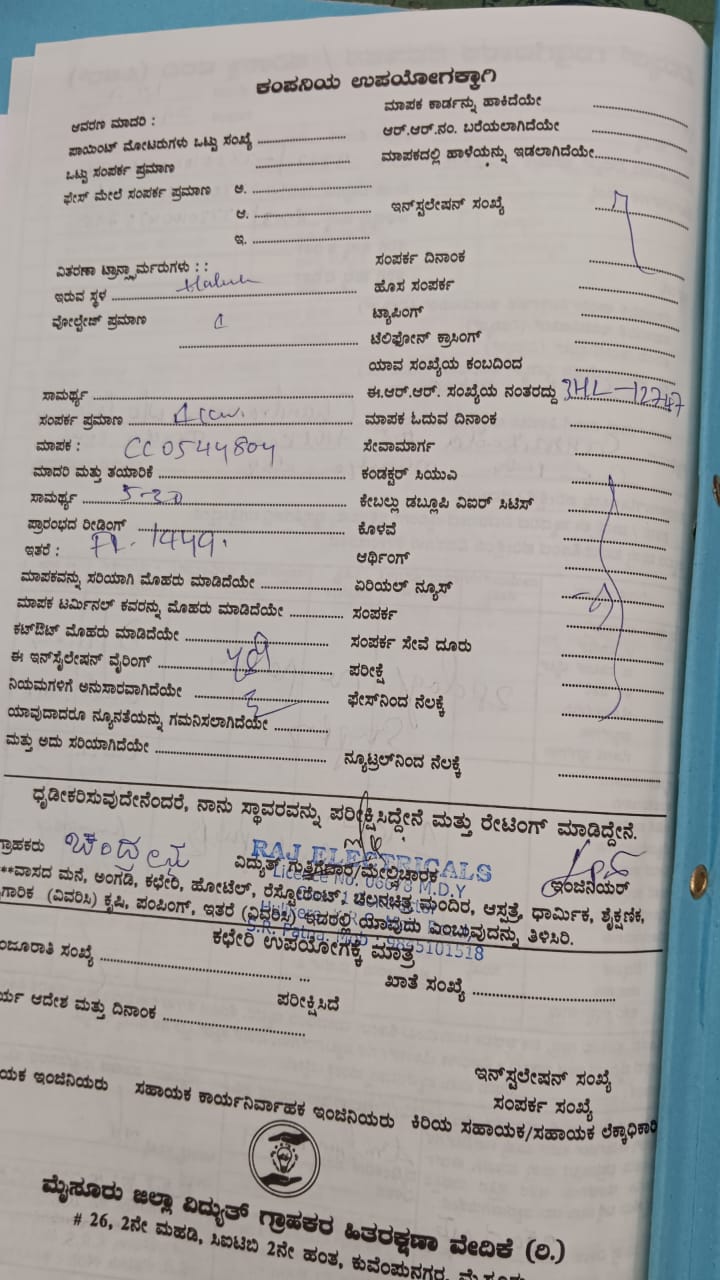 ಕಂಪನಿಯ ಉಪಯೋಗಕ್ಕಾಗಿ
ಆವರಣ ಮಾದರಿ :
ಮಾಪಕ ಕಾರ್ಡನ್ನು ಹಾಕಿದೆಯೇ
ಪಾಯಿಂಟ್ ಮೋಟರುಗಳು ಒಟ್ಟು ಸಂಖ್ಯೆ
ಆರ್.ಆರ್.ನಂ. ಬರೆಯಲಾಗಿದೆಯೇ
ಒಟ್ಟು ಸಂಪರ್ಕ ಪ್ರಮಾಣ
ಮಾಪಕದಲ್ಲಿ ಹಾಳೆಯನ್ನು ಇಡಲಾಗಿದೆಯೇ
ಫೇಸ್ ಮೇಲೆ ಸಂಪರ್ಕ ಪ್ರಮಾಣ ಅ.
ಆ. ಇನ್‌ಸ್ಟಲೇಷನ್ ಸಂಖ್ಯೆ
ಇ.
ವಿತರಣಾ ಟ್ರಾನ್ಸ್‌ಫಾರ್ಮರುಗಳು : :
ಸಂಪರ್ಕ ದಿನಾಂಕ
ಇರುವ ಸ್ಥಳ
ಹೊಸ ಸಂಪರ್ಕ
ವೋಲ್ಟೇಜ್ ಪ್ರಮಾಣ
ಟ್ಯಾಪಿಂಗ್
ಟೆಲಿಫೋನ್ ಕ್ರಾಸಿಂಗ್
ಯಾವ ಸಂಖ್ಯೆಯ ಕಂಬದಿಂದ
ಸಾಮರ್ಥ್ಯ
ಈ.ಆರ್.ಆರ್. ಸಂಖ್ಯೆಯ ನಂತರದ್ದು 3HL-12747
ಸಂಪರ್ಕ ಪ್ರಮಾಣ
ಮಾಪಕ ಓದುವ ದಿನಾಂಕ
ಮಾಪಕ : CC0544804
ಸೇವಾಮಾರ್ಗ
ಮಾದರಿ ಮತ್ತು ತಯಾರಿಕೆ
ಕಂಡಕ್ಟರ್ ಸಿಯುವಿ
ಸಾಮರ್ಥ್ಯ 5-30
ಕೇಬಲ್ಲು ಡಬ್ಲೂಪಿ ವಿಐರ್ ಸಿಟಿಸ್
ಪ್ರಾರಂಭದ ರೀಡಿಂಗ್
ಕೊಳವೆ
ಇತರೆ :
ಆರ್ಥಿಂಗ್
ಮಾಪಕವನ್ನು ಸರಿಯಾಗಿ ಮೊಹರು ಮಾಡಿದೆಯೇ
ಏರಿಯಲ್ ನ್ಯೂಸ್
ಮಾಪಕ ಟರ್ಮಿನಲ್ ಕವರನ್ನು ಮೊಹರು ಮಾಡಿದೆಯೇ
ಸಂಪರ್ಕ
ಕಟ್‌ಔಟ್ ಮೊಹರು ಮಾಡಿದೆಯೇ
ಸಂಪರ್ಕ ಸೇವೆ ದೂರು
ಈ ಇನ್‌ಸ್ಟೆಲೇಷನ್ ವೈರಿಂಗ್
ಪರೀಕ್ಷೆ
ನಿಯಮಗಳಿಗೆ ಅನುಸಾರವಾಗಿದೆಯೇ
ಫೇಸ್‌ನಿಂದ ನೆಲಕ್ಕೆ
ಯಾವುದಾದರೂ ನ್ಯೂನತೆಯನ್ನು ಗಮನಿಸಲಾಗಿದೆಯೇ
ಮತ್ತು ಅದು ಸರಿಯಾಗಿದೆಯೇ
ನ್ಯೂಟ್ರಲ್‌ನಿಂದ ನೆಲಕ್ಕೆ
ಧೃಡೀಕರಿಸುವುದೇನೆಂದರೆ, ನಾನು ಸ್ಥಾವರವನ್ನು ಪರೀಕ್ಷಿಸಿದ್ದೇನೆ ಮತ್ತು ರೇಟಿಂಗ್ ಮಾಡಿದ್ದೇನೆ.
RAJ ELECTRICALS
ಗ್ರಾಹಕರು ವಿದ್ಯುತ್ ಗುತ್ತಿಗೆದಾರ/ಮೇಲ್ವಿಚಾರಕ ಇಂಜಿನಿಯರ್
Licence No. 06678 M.D.Y
**ವಾಸದ ಮನೆ, ಅಂಗಡಿ, ಕಛೇರಿ, ಹೋಟೆಲ್, ರೆಸ್ಟೋರೆಂಟ್, ಚಲನಚಿತ್ರ ಮಂದಿರ, ಆಸ್ಪತ್ರೆ, ಧಾರ್ಮಿಕ, ಶೈಕ್ಷಣಿಕ,
ಗಾರಿಕ (ವಿವರಿಸಿ) ಕೃಷಿ, ಪಂಪಿಂಗ್, ಇತರೆ (ವಿವರಿಸಿ) ಇದರಲ್ಲಿ ಯಾವುದು ಎಂಬುವುದನ್ನು ತಿಳಿಸಿರಿ.
ಕಛೇರಿ ಉಪಯೋಗಕ್ಕೆ ಮಾತ್ರ
ಂಜೂರಾತಿ ಸಂಖ್ಯೆ
ಖಾತೆ ಸಂಖ್ಯೆ
ರ್ಯ ಆದೇಶ ಮತ್ತು ದಿನಾಂಕ
ಪರೀಕ್ಷಿಸಿದೆ
ಇನ್‌ಸ್ಟಲೇಷನ್ ಸಂಖ್ಯೆ
ಸಂಪರ್ಕ ಸಂಖ್ಯೆ
ಯಕ ಇಂಜಿನಿಯರು ಸಹಾಯಕ ಕಾರ್ಯನಿರ್ವಾಹಕ ಇಂಜಿನಿಯರು ಕಿರಿಯ ಸಹಾಯಕ/ಸಹಾಯಕ ಲೆಕ್ಕಾಧಿಕಾರಿ
ಮೈಸೂರು ಜಿಲ್ಲಾ ವಿದ್ಯುತ್ ಗ್ರಾಹಕರ ಹಿತರಕ್ಷಣಾ ವೇದಿಕೆ (ರಿ.)
# 26, 2ನೇ ಮಹಡಿ, ಸಿಐಟಿಬಿ 2ನೇ ಹಂತ, ಕುವೆಂಪುನಗರ, ಮೈಸೂರು